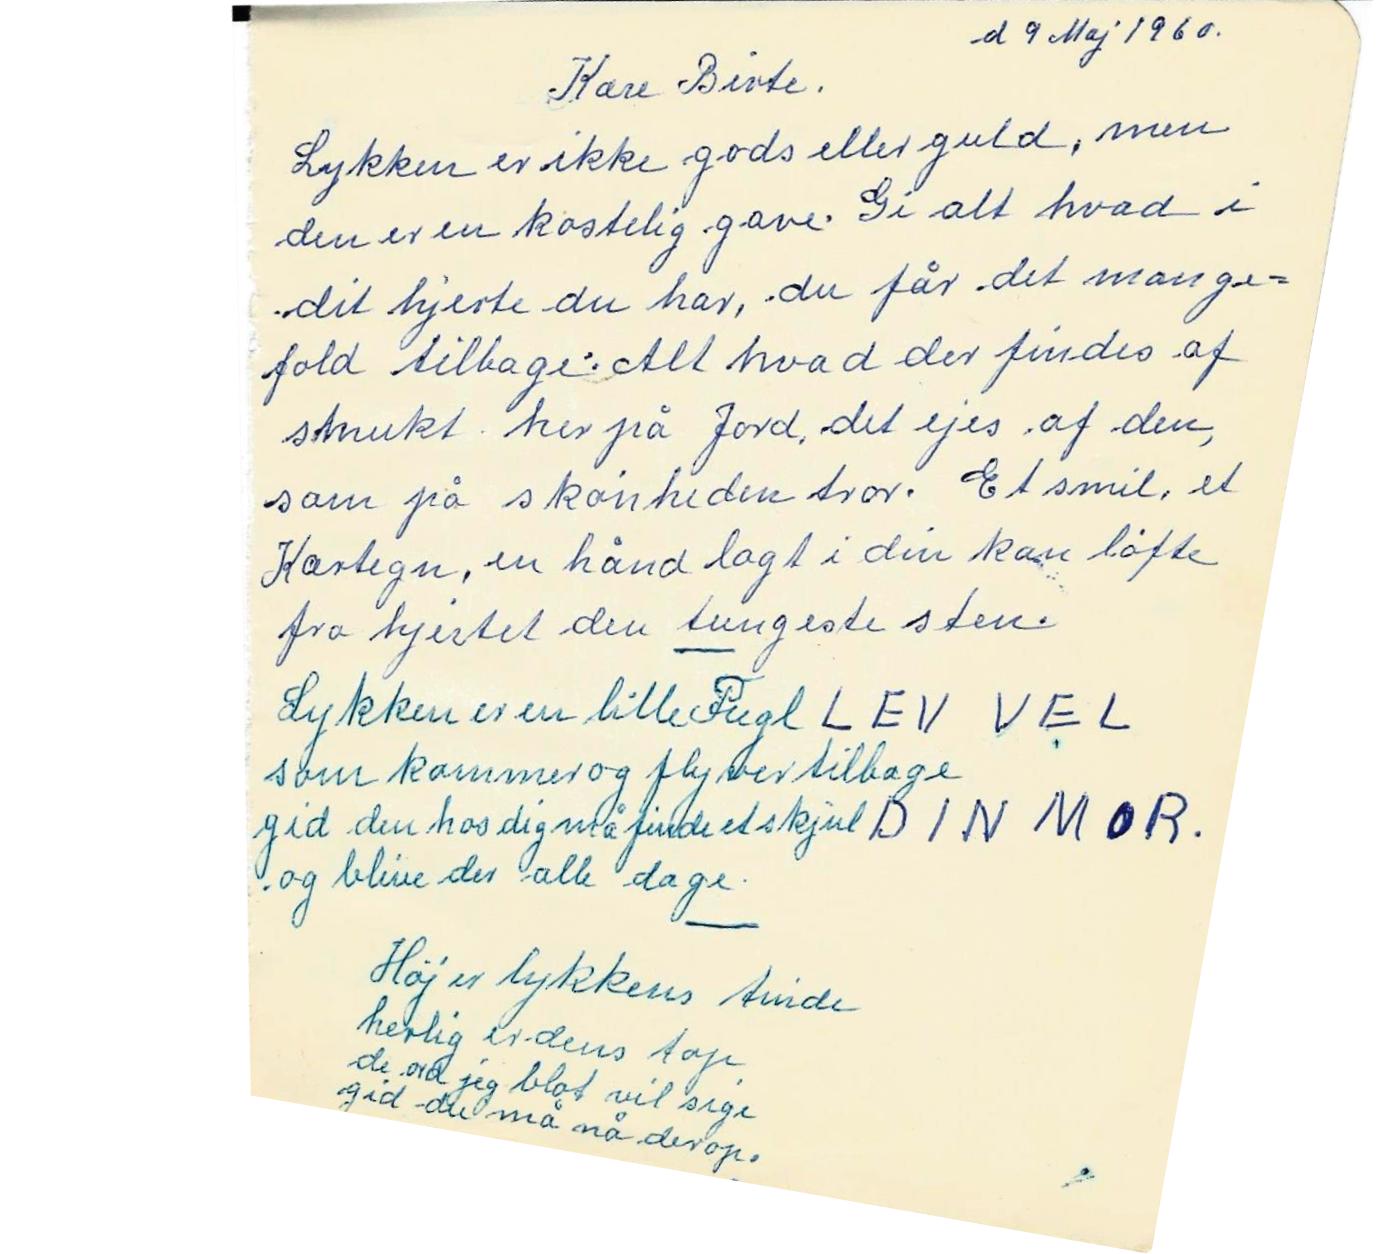 d 9 Maj 1960.
Kære Birte.
Lykken er ikke gods eller guld, men
den er en kostelig gave. Gi alt hvad i
dit hjerte du har, du får det mange=
fold tilbage. Alt hvad der findes af
smukt her på Jord, det ejes af den,
som på skönheden tror. Et smil, et
Kærtegn, en hånd lagt i din kan löfte
fra hjertet den tungeste sten.
Lykken er en lille Fugl LEV VEL
som kommer og flyver tilbage
gid den hos dig må finde et skjul DIN MOR.
og blive der alle dage.
Höj er lykkens tinde
herlig er dens top
de ord jeg blot vil sige
gid du må nå derop.